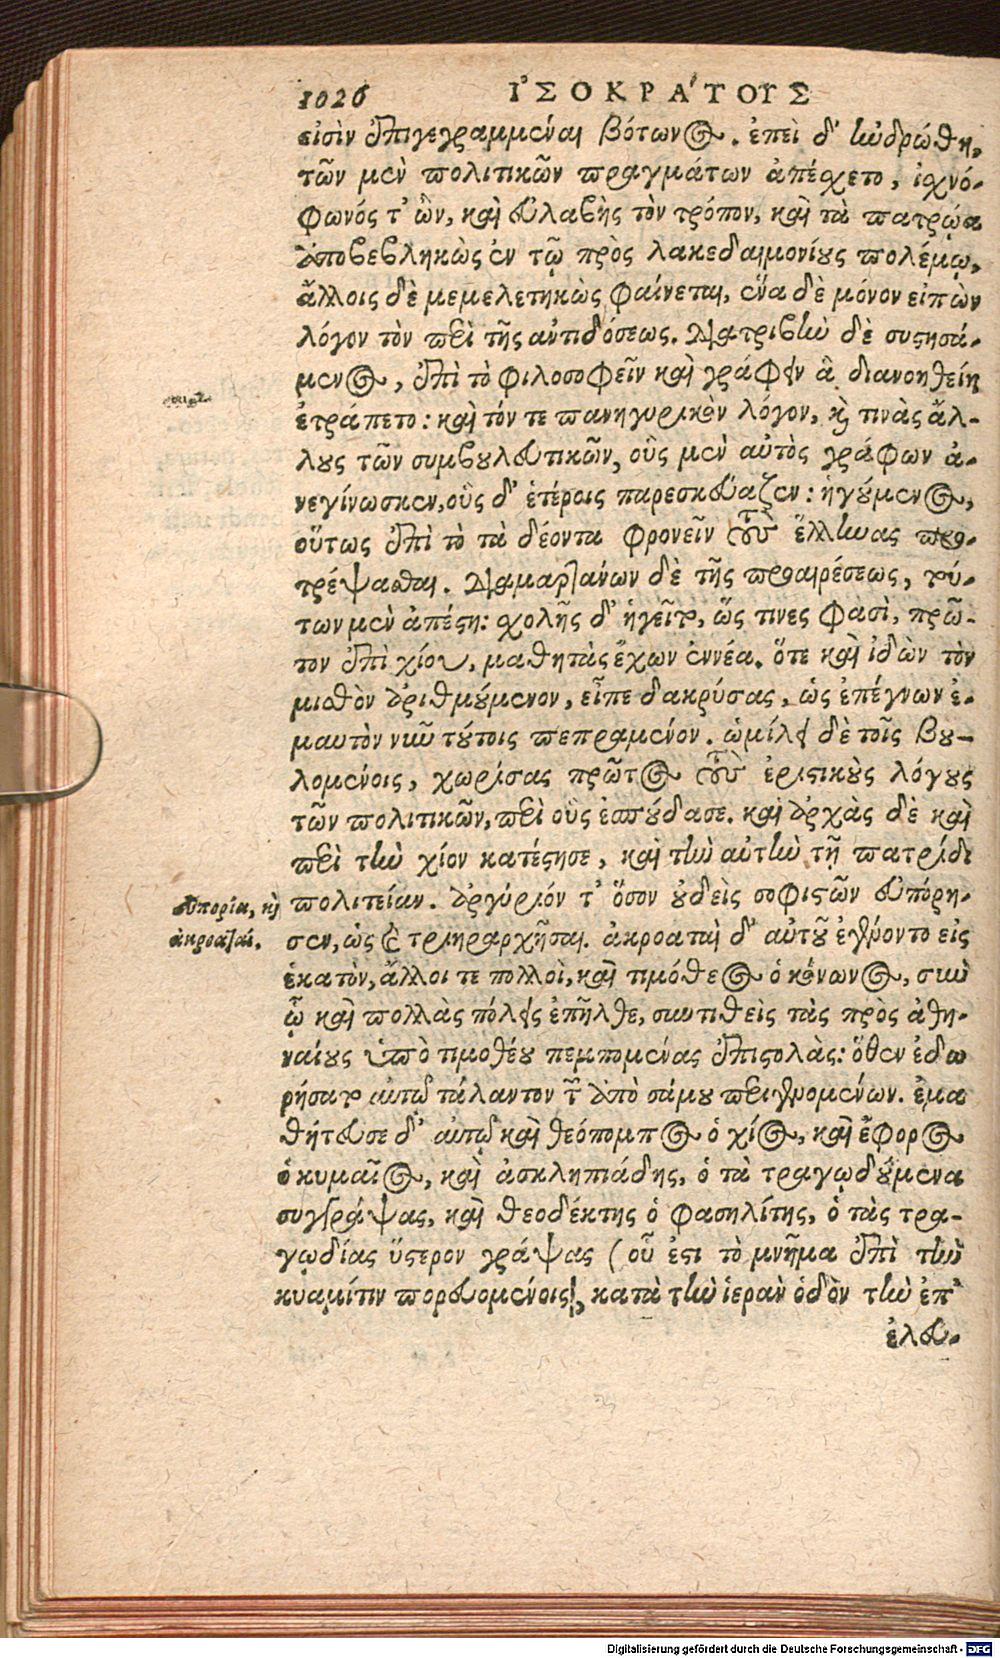 1026 ἸΣΟΚΡΑ'ΤΟΥΣ
εἰσὶν ἐπιγεγραμμέναι βότωνος. ἐπεὶ δ' ἠνδρώθη,
τῶν μὲν πολιτικῶν πραγμάτων ἀπέχετο, ἰχνό-
φωνός τ' ὢν, καὶ εὐλαβὴς τὸν τρόπον, καὶ τὰ πατρῷα
ἀποβεβληκὼς ἐν τῷ πρὸς λακεδαιμονίους πολέμῳ,
ἄλλοις δὲ μεμελετηκὼς φαίνεται, ἕνα δὲ μόνον εἰπὼν
λόγον τὸν περὶ τῆς ἀντιδόσεως. Διατριβὴν δὲ συστησά-
μενος, ἐπὶ τὸ φιλοσοφεῖν καὶ γράφειν ἃ διανοηθείη
ἐτράπετο: καὶ τόν τε πανηγυρικὸν λόγον, καὶ τινὰς ἄλ-
λους τῶν συμβουλευτικῶν, οὓς μὲν αὐτὸς γράφων ἀ-
νεγίνωσκεν, οὓς δ' ἑτέροις παρεσκεύαζεν: ἡγούμενος,
οὕτως ἐπὶ τὸ τὰ δέοντα φρονεῖν τοὺς ἕλληνας προ-
τρέψασθαι. Διαμαρτάνων δὲ τῆς προαιρέσεως, τού-
των μὲν ἀπέστη: σχολῆς δ' ἡγεῖτο, ὥς τινες φασὶ, πρῶ-
τον ἐπὶ χίου, μαθητὰς ἔχων ἐννέα. ὅτε καὶ ἰδὼν τὸν
μισθὸν ἀριθμούμενον, εἶπε δακρύσας, ὡς ἐπέγνων ἐ-
μαυτὸν νῦν τούτοις πεπραμένον. ὡμίλει δὲ τοῖς βου-
λομένοις, χωρίσας πρῶτος τοὺς ἐριστικοὺς λόγους
τῶν πολιτικῶν, περὶ οὓς ἐσπούδασε. καὶ ἀρχὰς δὲ καὶ
περὶ τὴν χίον κατέστησε, καὶ τὴν αὐτὴν τῇ πατρίδι
εὐπορία, καὶ
πολιτείαν. ἀργύριόν τ' ὅσον οὐδεὶς σοφιστῶν εὐπόρη-
ἀκροαταί.
σεν, ὡς καὶ τριηραρχῆσαι. ἀκροαταὶ δ' αὐτοῦ ἐγένοντο εἰς
ἑκατὸν, ἄλλοι τε πολλοὶ, καὶ τιμόθεος ὁ κόνωνος, σὺν
ᾧ καὶ πολλὰς πόλεις ἐπῆλθε, συντιθεὶς τὰς πρὸς ἀθη-
ναίους ὑπὸ τιμοθέου πεμπομένας ἐπιστολὰς: ὅθεν ἐδω
ρήσατο αὐτῷ τάλαντον τῶν ἀπὸ σάμου περιγενομένων. ἐμα
θήτευσε δ' αὐτῷ καὶ θεόπομπος ὁ χίος, καὶ ἔφορος
ὁ κυμαῖος, καὶ ἀσκληπιάδης, ὁ τὰ τραγῳδούμενα
συγγράψας, καὶ θεοδέκτης ὁ φασηλίτης, ὁ τὰς τρα-
γῳδίας ὕστερον γράψας (οὗ ἐστι τὸ μνῆμα ἐπὶ τὴν
κυαμίτιν πορευομένοις), κατὰ τὴν ἱερὰν ὁδὸν τὴν ἐπ'
ἐλευ-
Digitalisierung gefördert durch die Deutsche Forschungsgemeinschaft - DFG